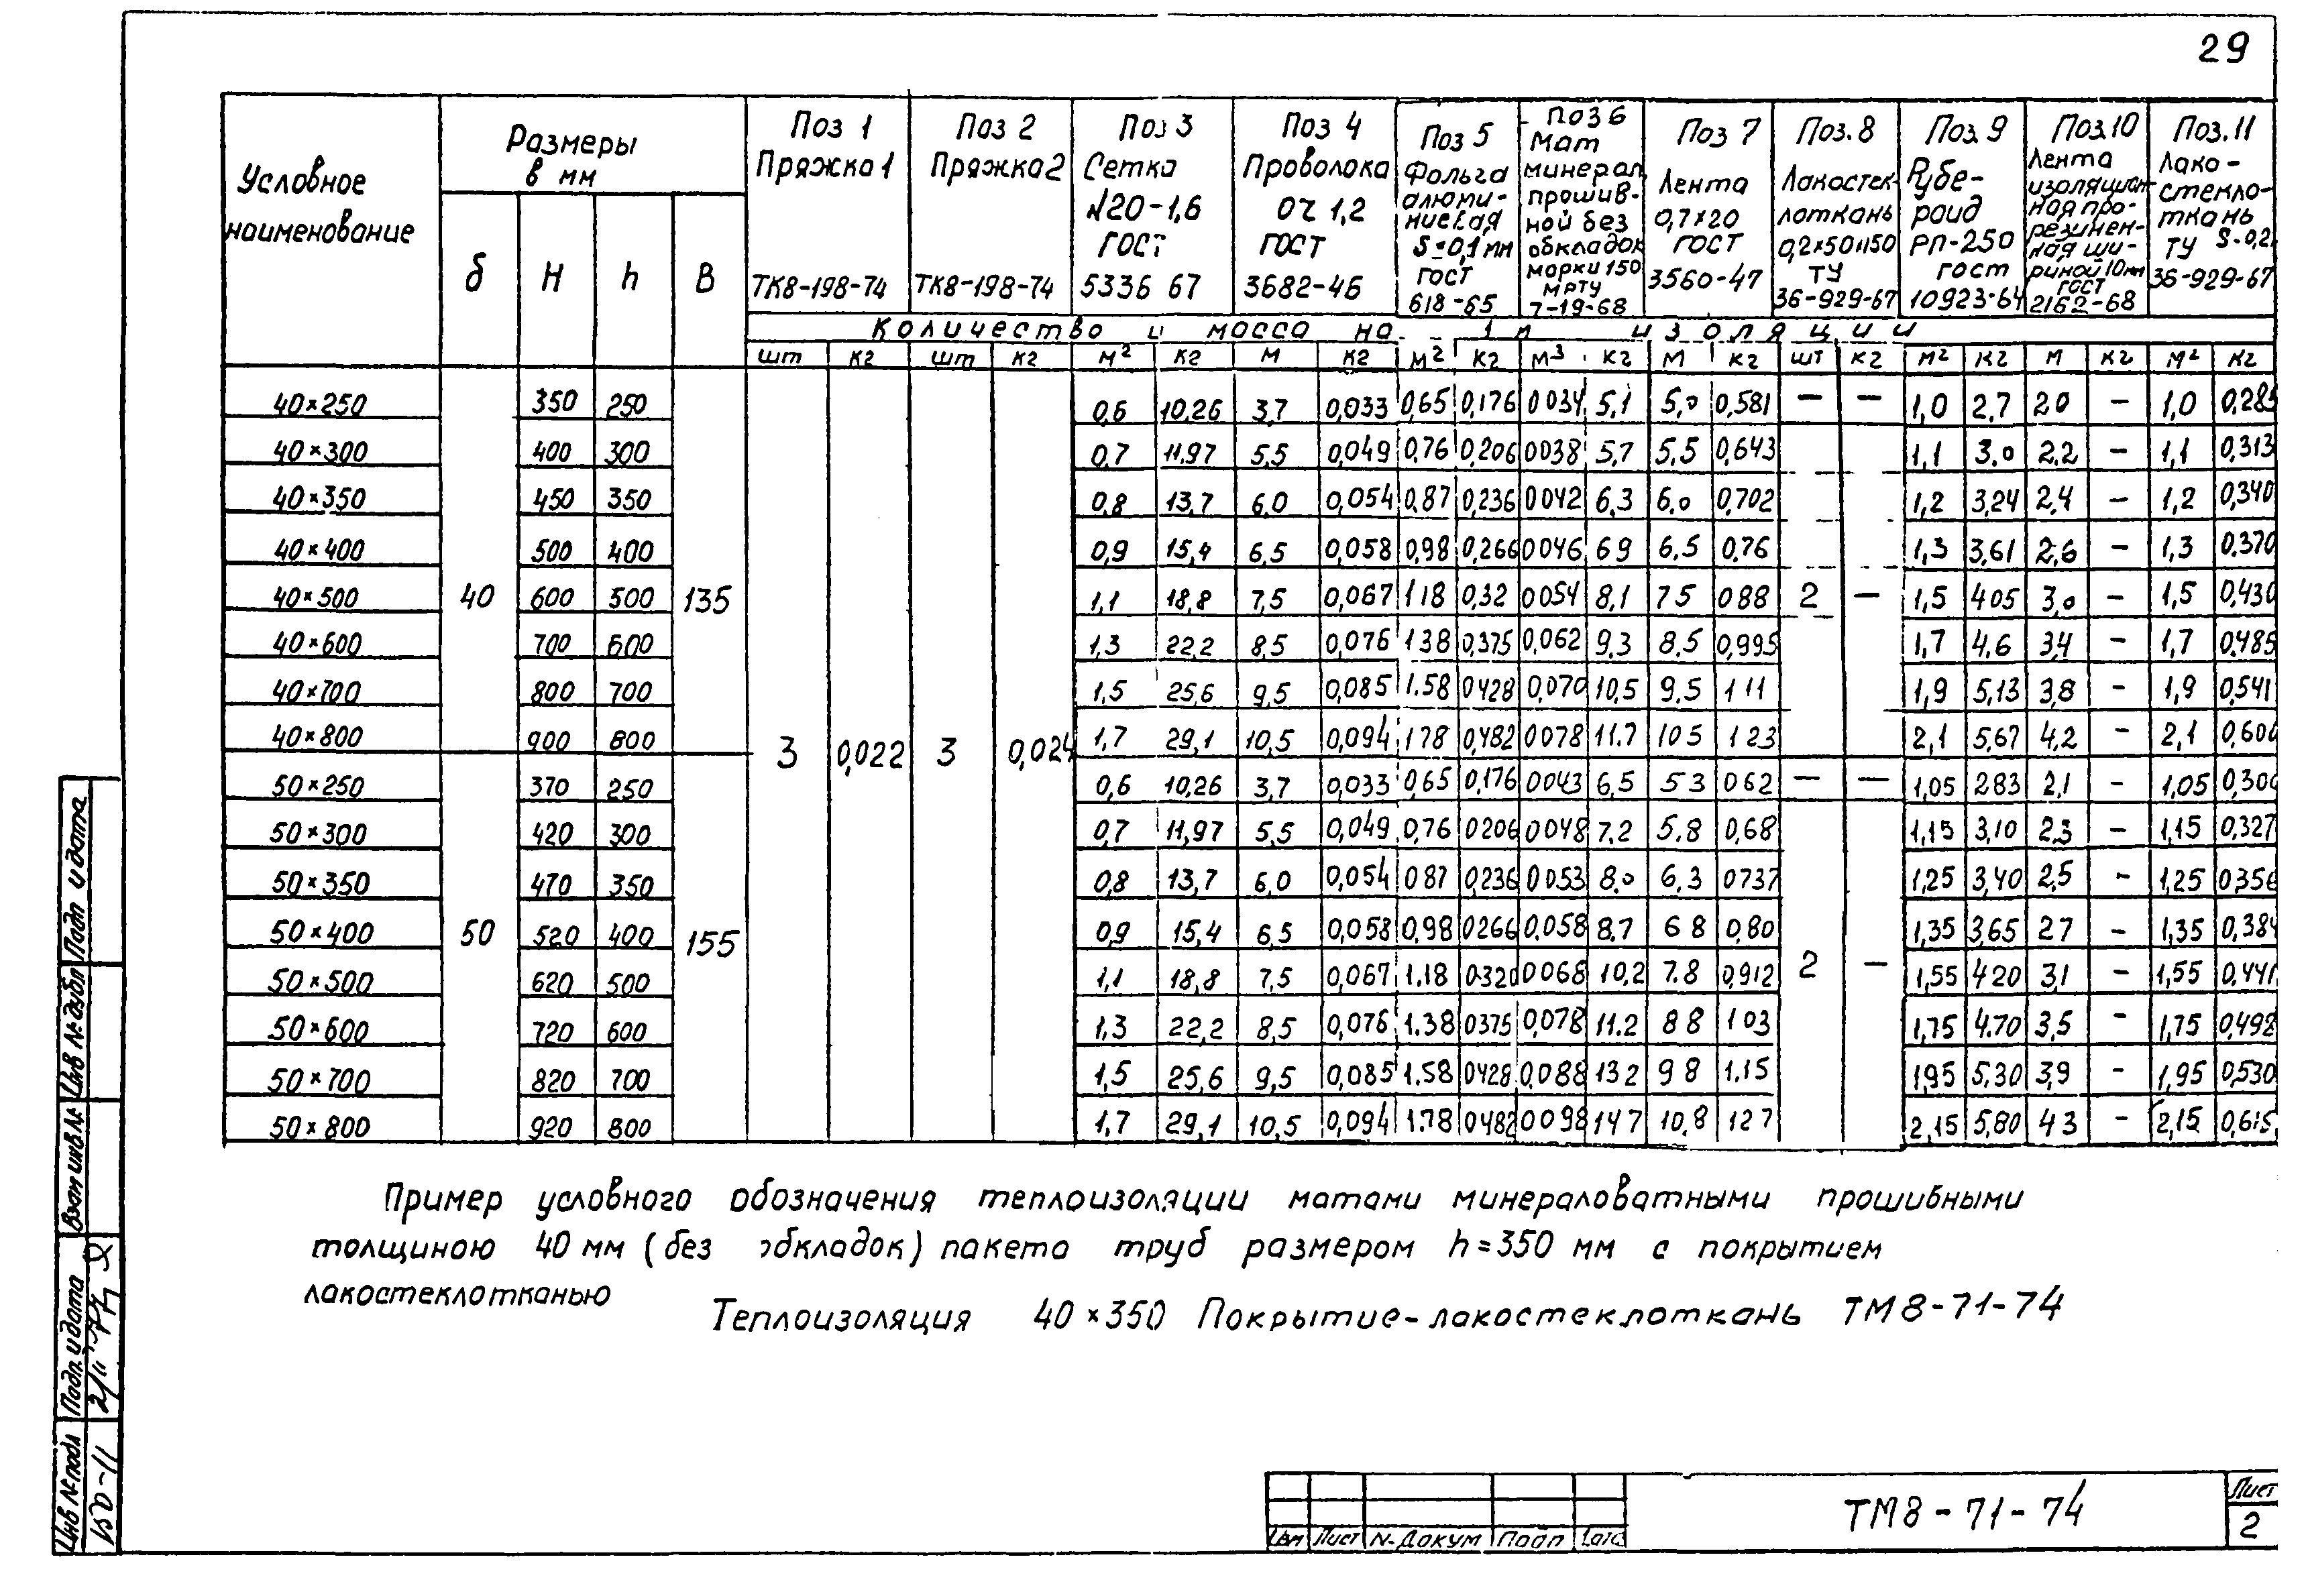 29
Условное наименование
Размеры в мм
δ H h B
Поз 1 Пряжка 1 ТК8-198-74
Поз 2 Пряжка 2 ТК8-198-74
Поз 3 Сетка №20-1,6 ГОСТ 5336 67
Поз 4 Проволока ОЧ 1,2 ГОСТ 3682-46
Поз 5 Фольга алюминиевая S=0,1 мм ГОСТ 618-65
Поз 6 Мат минерал прошивной без обкладок марки 150 МРТУ 7-19-68
Поз 7 Лента 0,7×20 ГОСТ 3560-47
Поз. 8 Лакостеклоткань 0,2×50×150 ТУ 36-929-67
Поз. 9 Рубероид РП-250 гост 10923-64
Поз 10 Лента изоляционная прорезиненная шириной 10 мм ГОСТ 2162-68
Поз. 11 Лакостеклоткань ТУ S-0,2 36-929-67
Количество и масса на 1 м изоляции
шт кг шт кг м² кг м кг м² кг м³ кг м кг шт кг м² кг м кг м² кг
40×250 350 250 0,6 10,26 3,7 0,033 0,65 0,176 0034 5,1 5,0 0,581 — — 1,0 2,7 20 — 1,0 0,285
40×300 400 300 0,7 11,97 5,5 0,049 0,76 0,206 0038 5,7 5,5 0,643 1,1 3,0 2,2 — 1,1 0,313
40×350 450 350 0,8 13,7 6,0 0,054 0,87 0,236 0042 6,3 6,0 0,702 1,2 3,24 2,4 — 1,2 0,340
40×400 500 400 0,9 15,4 6,5 0,058 0,98 0,266 0046 69 6,5 0,76 1,3 3,61 2,6 — 1,3 0,370
40×500 40 600 500 135 1,1 18,8 7,5 0,067 1 18 0,32 0054 8,1 75 088 2 — 1,5 405 3,0 — 1,5 0,430
40×600 700 600 1,3 22,2 8,5 0,076 1 38 0,375 0,062 9,3 8,5 0,995 1,7 4,6 3,4 — 1,7 0,485
40×700 800 700 1,5 25,6 9,5 0,085 1.58 0428 0,070 10,5 9,5 1 11 1,9 5,13 3,8 — 1,9 0,541
40×800 900 800 3 0,022 3 0,024 1,7 29,1 10,5 0,094 1 78 0,482 0078 11.7 105 1 23 2,1 5,67 4,2 — 2,1 0,600
50×250 370 250 0,6 10,26 3,7 0,033 0,65 0,176 0043 6,5 53 062 — — 1,05 283 2,1 — 1,05 0,300
50×300 420 300 0,7 11,97 5,5 0,049 0,76 0206 0048 7.2 5,8 0,68 1,15 3,10 2,3 — 1,15 0,327
50×350 470 350 0,8 13,7 6,0 0,054 087 0,236 0053 8,0 6,3 0737 1,25 3,40 2,5 — 1,25 0,356
50×400 50 520 400 155 0,9 15,4 6,5 0,058 0,98 0266 0,058 8.7 68 0,80 1,35 3,65 27 — 1,35 0,384
50×500 620 500 1,1 18,8 7,5 0,067 1.18 0.320 0068 10,2 7.8 0,912 2 — 1,55 420 3,1 — 1,55 0,441
50×600 720 600 1,3 22,2 8,5 0,076 1.38 0375 0,078 11.2 88 1 03 1,75 4.70 3,5 — 1,75 0,498
50×700 820 700 1,5 25,6 9,5 0,085 1.58 0428 0,088 132 98 1.15 1,95 5,30 3,9 — 1,95 0,530
50×800 920 800 1,7 29,1 10,5 0,094 1.78 0482 0098 147 10,8 127 2,15 5,80 43 — 2,15 0,615
Пример условного обозначения теплоизоляции матами минераловатными прошивными
толщиною 40 мм (без обкладок) пакета труб размером h=350 мм с покрытием
лакостеклотканью
Теплоизоляция 40×350 Покрытие-лакостеклоткань ТМ8-71-74
Подп и дата
Инв № дубл
Взам инв №
Подп. и дата
Инв № подл
Изм Лист N-Докум Подп Дата
ТМ8-71-74
Лист
2